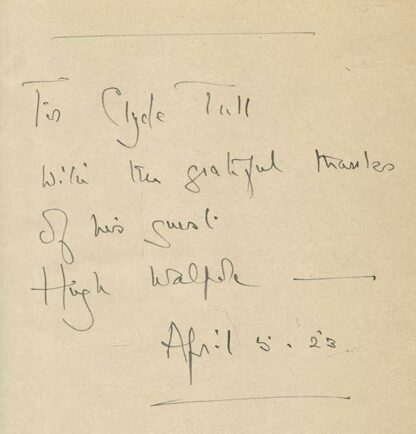 To Clyde Tull
With the grateful thanks
of his guest
Hugh Walpole
April 5. 23